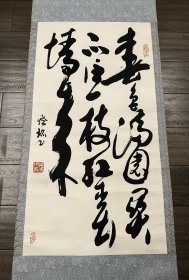 春色满园关
不住一枝红杏出
墙来